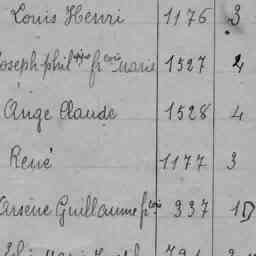 Louis Henri 1176 3
Joseph phil ppe fr cois marie 1527 4
Ange Claude 1528 4
René 1177 3
Arsène Guillaume fr cois 937 1D